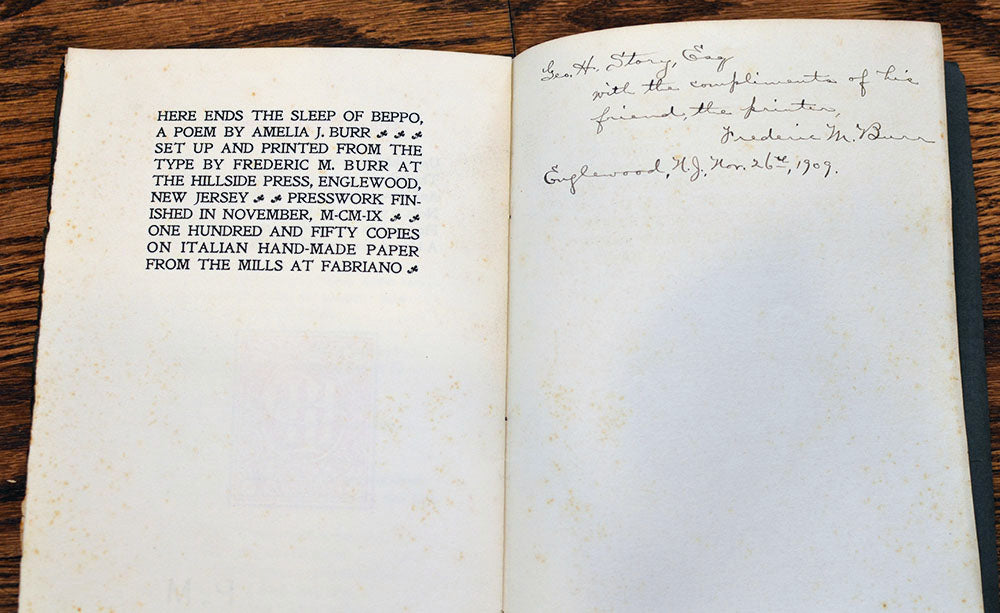 HERE ENDS THE SLEEP OF BEPPO,
A POEM BY AMELIA J. BURR
SET UP AND PRINTED FROM THE
TYPE BY FREDERIC M. BURR AT
THE HILLSIDE PRESS, ENGLEWOOD,
NEW JERSEY PRESSWORK FIN-
ISHED IN NOVEMBER, M-CM-IX
ONE HUNDRED AND FIFTY COPIES
ON ITALIAN HAND-MADE PAPER
FROM THE MILLS AT FABRIANO
Geo. H. Story, Esq
with the compliments of his
friend, the printer,
Frederic M. Burr
Englewood, N.J., Nov. 26th, 1909.